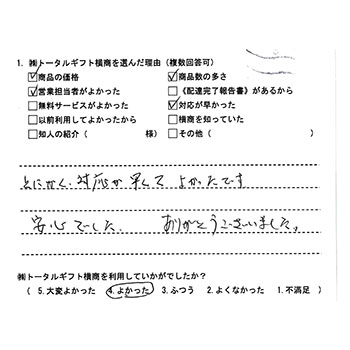 1. ㈱トータルギフト横商を選んだ理由（複数回答可）
☑商品の価格　☑商品数の多さ
☑営業担当者がよかった　□《配達完了報告書》があるから
□無料サービスがよかった　☑対応が早かった
□以前利用してよかったから　□横商を知っていた
□知人の紹介（　様）　□その他（　）
とにかく、対応が早くて よかったです
安心でした。 ありがとうございました。
㈱トータルギフト横商を利用していかがでしたか？
（ 5. 大変よかった　4. よかった　3. ふつう　2. よくなかった　1. 不満足 ）